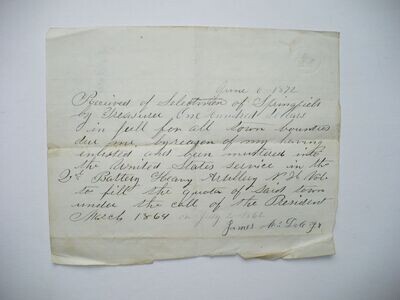 June 6 1872
Received of Selectmen of Springfield
by Treasurer One hundred Dollars
in full for all town bounties
due me, by reason of my having
enlisted and been mustered into
the United States service in the
2d Battery Heavy Artillery N. H. Vols.
to fill the quota of said town
under the call of the President
March 1864
James